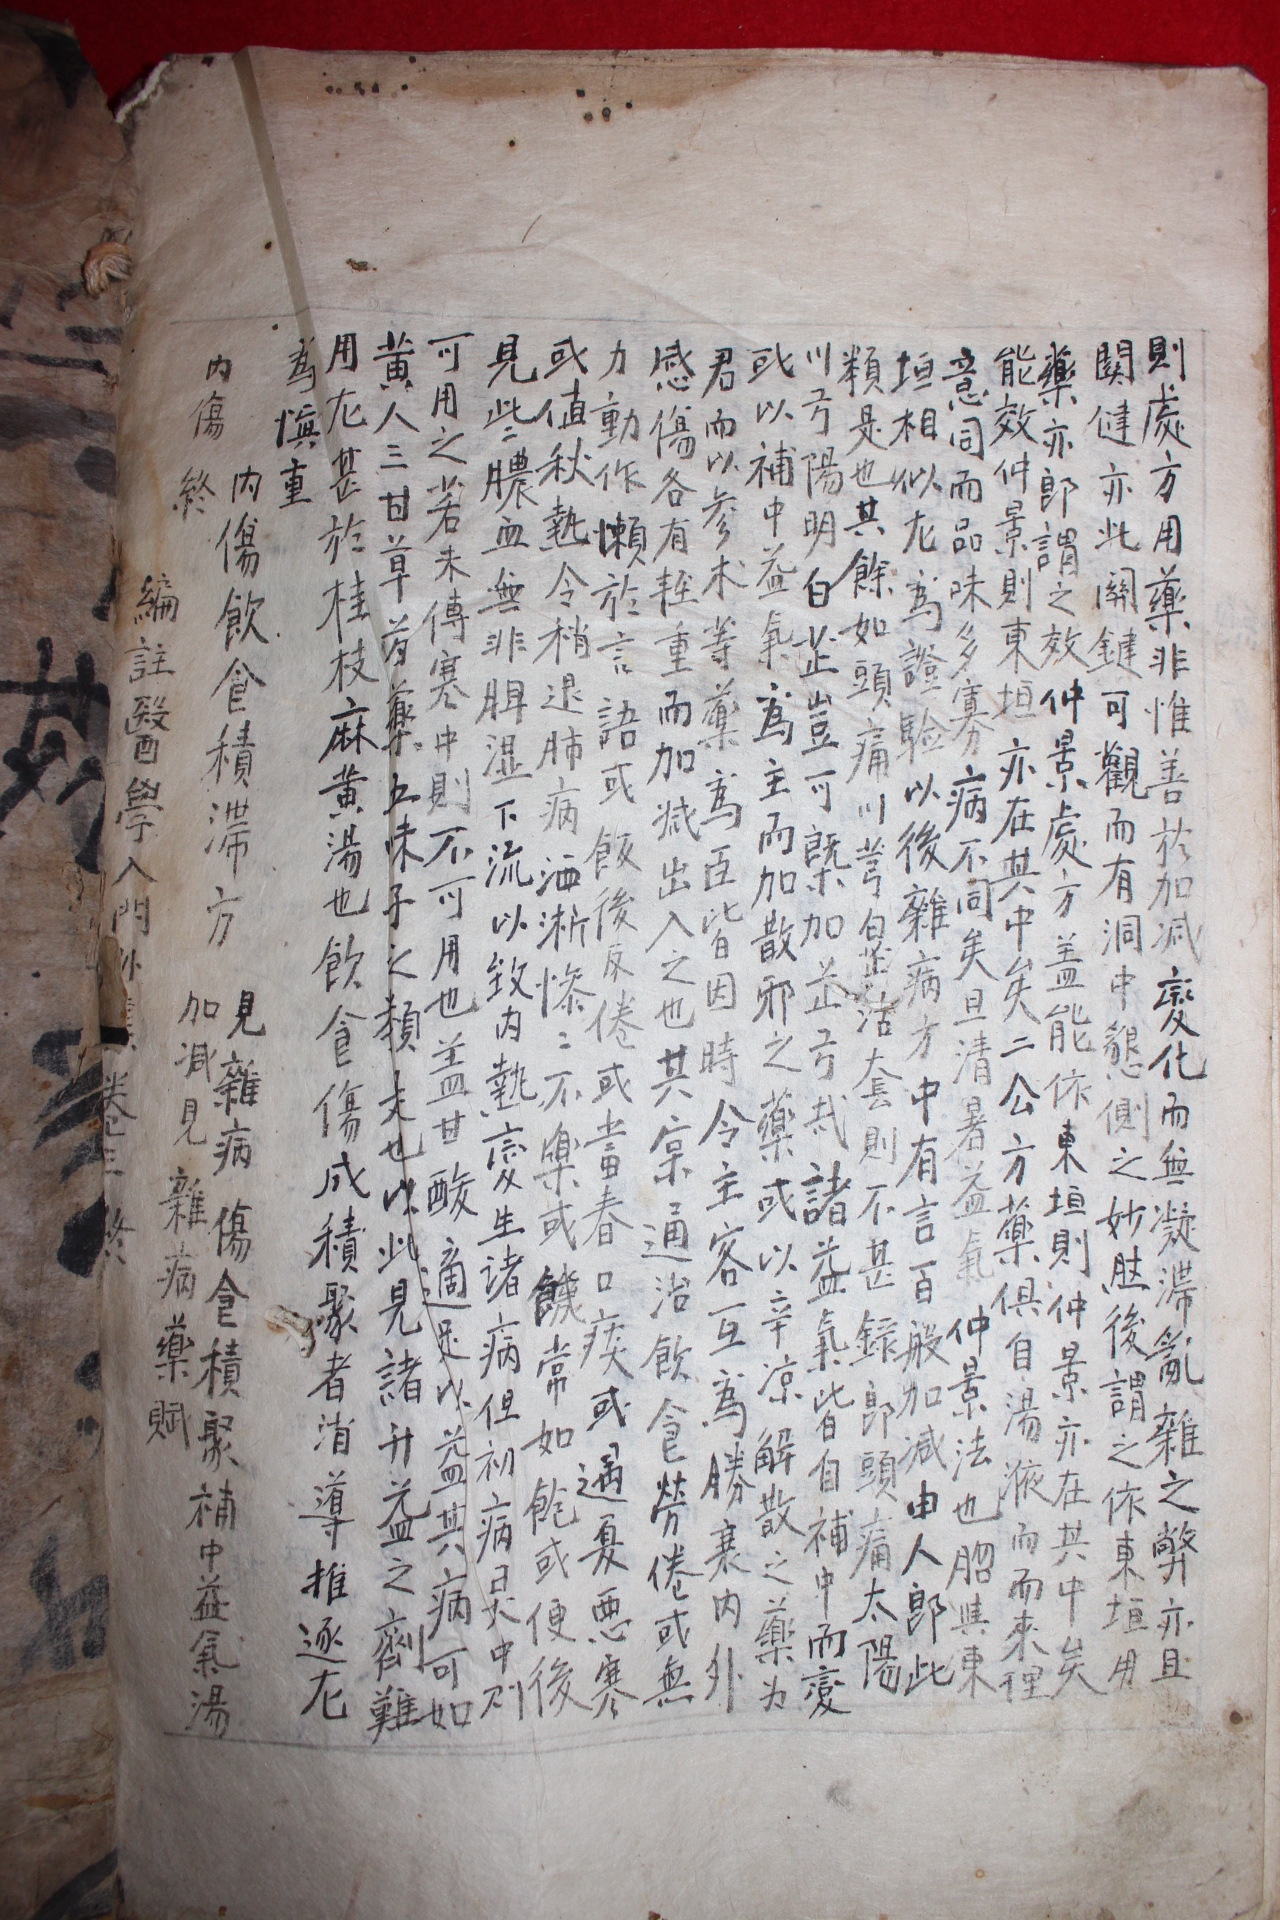 則處方用藥非惟善於加减變化而無凝滯亂雜之弊亦且
関健亦此關鍵可觀而有洞中懇側之妙肚後謂之依東垣用
藥亦郎謂之效仲景處方盖能依東垣則仲景亦在其中矣
能效仲景則東垣亦在其中矣二公方藥俱自湯液而來理
意同而品味多寡分病不同矣且清暑益氣仲景法也昭與東
垣相似尤爲證驗以後雜病方中有言百般加减由人郎此
類是也其餘如頭痛川芎白芷活套則不甚錄郎頭痛太陽
川芎陽明白芷豈可槩加芷芎哉諸益氣皆自補中而變
或以補中益氣爲主而加散邪之藥或以辛凉解散之藥为
君而以參朮等藥爲臣皆因時令主客互爲勝衰內外
感傷各有輕重而加减出入之也其宗通治飮食勞倦或無
力動作懶於言語或飯後反倦或當春口痰或遇夏悪寒
或値秋熱令稍退肺病洒淅慘二不樂或饑常如飽或便後
見此二膿血無非脾湿下流以致內熱變生諸病但初病中則
可用之若未傳寒中則不可用也盖甘酸適足以益其病可如
黄人三甘草芍藥五味子之類走也以此見諸升益之劑難
用尤甚於桂枝麻黃湯也飮食傷成積聚者消導推逐尤
爲愼重
內傷飮食積滯方 見雜病傷食積聚補中益氣湯
加减見雜病藥賦
內傷終
編註醫學入門外集卷三終